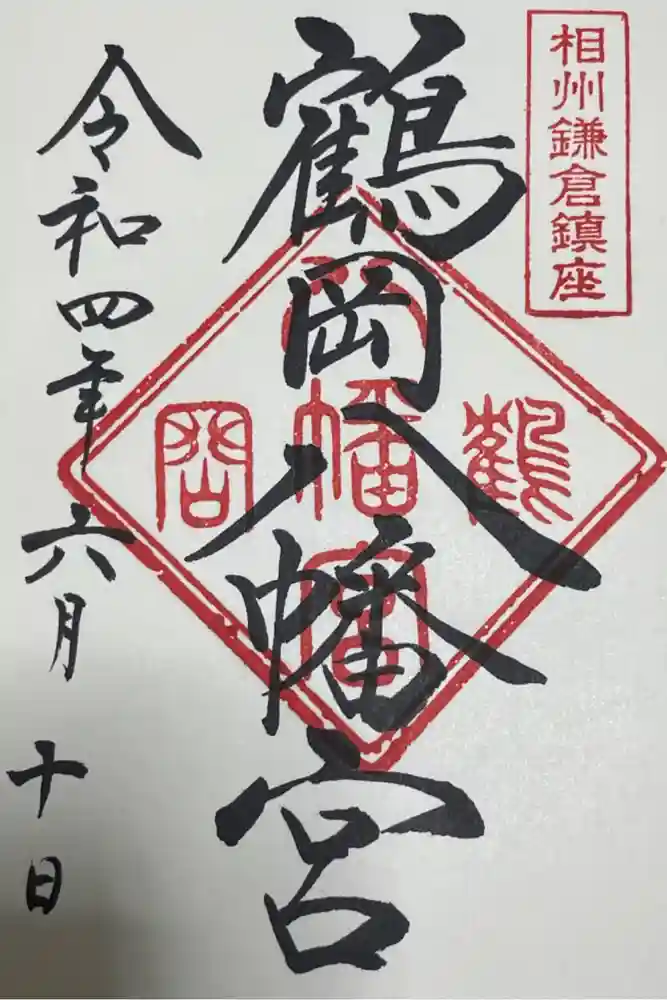 相州鎌倉鎮座
鶴岡八幡宮
鶴
八幡宮
岡
令和四年六月十日